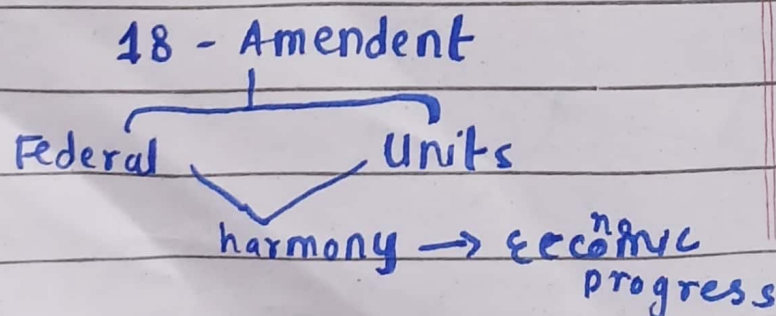 18 - Amendent
Federal Units
harmony → Eeconomic
progress